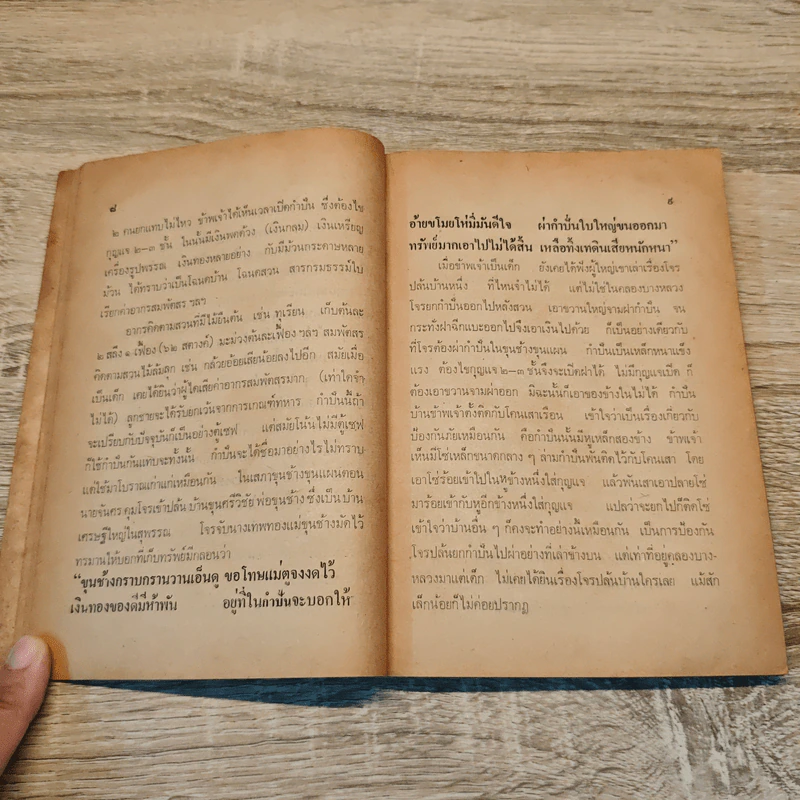 ๘
๒ คนยกแทบไม่ไหว ข้าพเจ้าได้เห็นเวลาเปิดกำปั่น ซึ่งต้องไข
กุญแจ ๒-๓ ชั้น ในนั้นมีเงินพดด้วง (เงินกลม) เงินเหรียญ
เครื่องรูปพรรณ เงินทองหลายอย่าง กับมีม้วนกระดาษหลาย
ม้วน ได้ทราบว่าเป็นโฉนดบ้าน โฉนดสวน สารกรมธรรม์ใบ
เรียกค่าอากรสมพัตสร ฯลฯ
อากรคิดตามสวนที่มีไม้ยืนต้น เช่น ทุเรียน เก็บต้นละ
๒ สลึง ๑ เฟื้อง (๖๒ สตางค์) มะม่วงต้นละเฟื้อง ฯลฯ สมพัตสร
คิดตามสวนไม้ล้มลุก เช่น กล้วยอ้อยเสียน้อยลงไปอีก สมัยเมื่อ
เป็นเด็ก เคยได้ยินว่าผู้ใดเสียค่าอากรสมพัตสรมาก (เท่าใดจำ
ไม่ได้) ลูกชายจะได้รับยกเว้นจากการเกณฑ์ทหาร กำปั่นนี้ถ้า
จะเปรียบกับปัจจุบันก็เป็นอย่างตู้เซฟ แต่สมัยโน้นไม่มีตู้เซฟ
ก็ใช้กำปั่นกันแทบจะทั้งนั้น กำปั่นจะได้ชื่อมาอย่างไรไม่ทราบ
แต่ใช้มาโบราณเก่าแก่เหมือนกัน ในเสภาขุนช้างขุนแผนตอน
นายจันศร คุมโจรเข้าปล้น บ้านขุนศรีวิชัย พ่อขุนช้าง ซึ่งเป็นบ้าน
เศรษฐีใหญ่ในสุพรรณ โจรจับนางเทพทองแม่ขุนช้างมัดไว้
ทรมานให้บอกที่เก็บทรัพย์มีกลอนว่า
“ขุนช้างกราบกรานวานเอ็นดู ขอโทษแม่ตูจงงดไว้
เงินทองของดีมี่ห้าพัน อยู่ที่ในกำปั่นจะบอกให้
๙
อ้ายขโมยโห่มี่มันดีใจ ผ่ากำปั่นใบใหญ่ขนออกมา
ทรัพย์มากเอาไปไม่ได้สิ้น เหลือทิ้งเทดินเสียหนักหนา”
เมื่อข้าพเจ้าเป็นเด็ก ยังเคยได้ฟังผู้ใหญ่เขาเล่าเรื่องโจร
ปล้นบ้านหนึ่ง ที่ไหนจำไม่ได้ แต่ไม่ใช่ในคลองบางหลวง
โจรยกกำปั่นออกไปหลังสวน เอาขวานใหญ่จามฝากำปั่น จน
กระทั่งฝาฉีกแบะออกไปจึงเอาเงินไปด้วย ก็เป็นอย่างเดียวกับ
ที่โจรต้องผ่ากำปั่นในขุนช้างขุนแผน กำปั่นเป็นเหล็กหนาแข็ง
แรง ต้องไขกุญแจ ๒-๓ ชั้นจึงจะเปิดฝาได้ ไม่มีกุญแจเปิด ก็
ต้องเอาขวานจามผ่าออก มิฉะนั้นก็เอาของข้างในไม่ได้ กำปั่น
บ้านข้าพเจ้าตั้งติดกับโคนเสาเรือน เข้าใจว่าเป็นเรื่องเกี่ยวกับ
ป้องกันภัยเหมือนกัน คือกำปั่นนั้นมีหูเหล็กสองข้าง ข้าพเจ้า
เห็นมีโซ่เหล็กขนาดกลาง ๆ ล่ามกำปั่นพันติดไว้กับโคนเสา โดย
เอาโซ่ร้อยเข้าไปในหูข้างหนึ่งใส่กุญแจ แล้วพันเสาเอาปลายโซ่
มาร้อยเข้ากับหูอีกข้างหนึ่งใส่กุญแจ แปลว่าจะยกไปก็ติดโซ่
เข้าใจว่าบ้านอื่น ๆ ก็คงจะทำอย่างนี้เหมือนกัน เป็นการป้องกัน
โจรปล้นยกกำปั่นไปผ่าอย่างที่เล่าข้างบน แต่เท่าที่อยู่คลองบาง-
หลวงมาแต่เด็ก ไม่เคยได้ยินเรื่องโจรปล้นบ้านใครเลย แม้ลัก
เล็กน้อยก็ไม่ค่อยปรากฏ